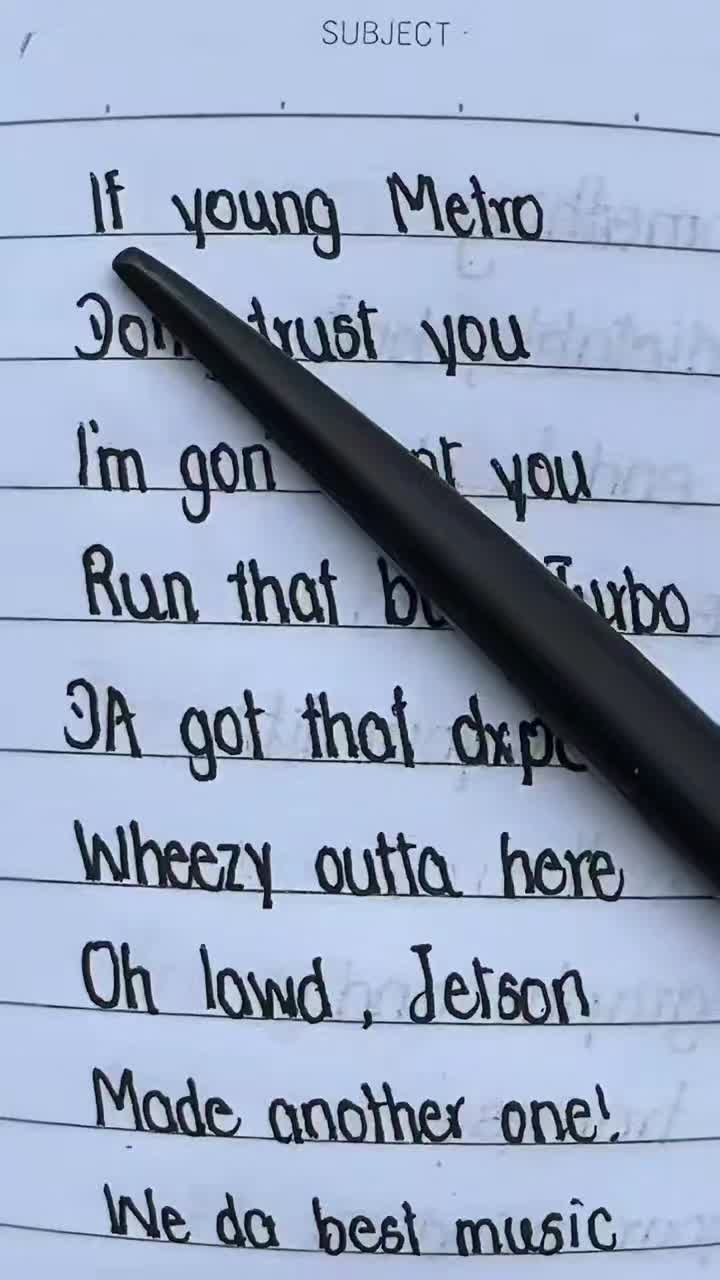 SUBJECT
If young Metro
trust you
I'm gon you
Run that Turbo
DA got that
Wheezy outta here
Oh lawd, Jetson
Made another one!
We da best music